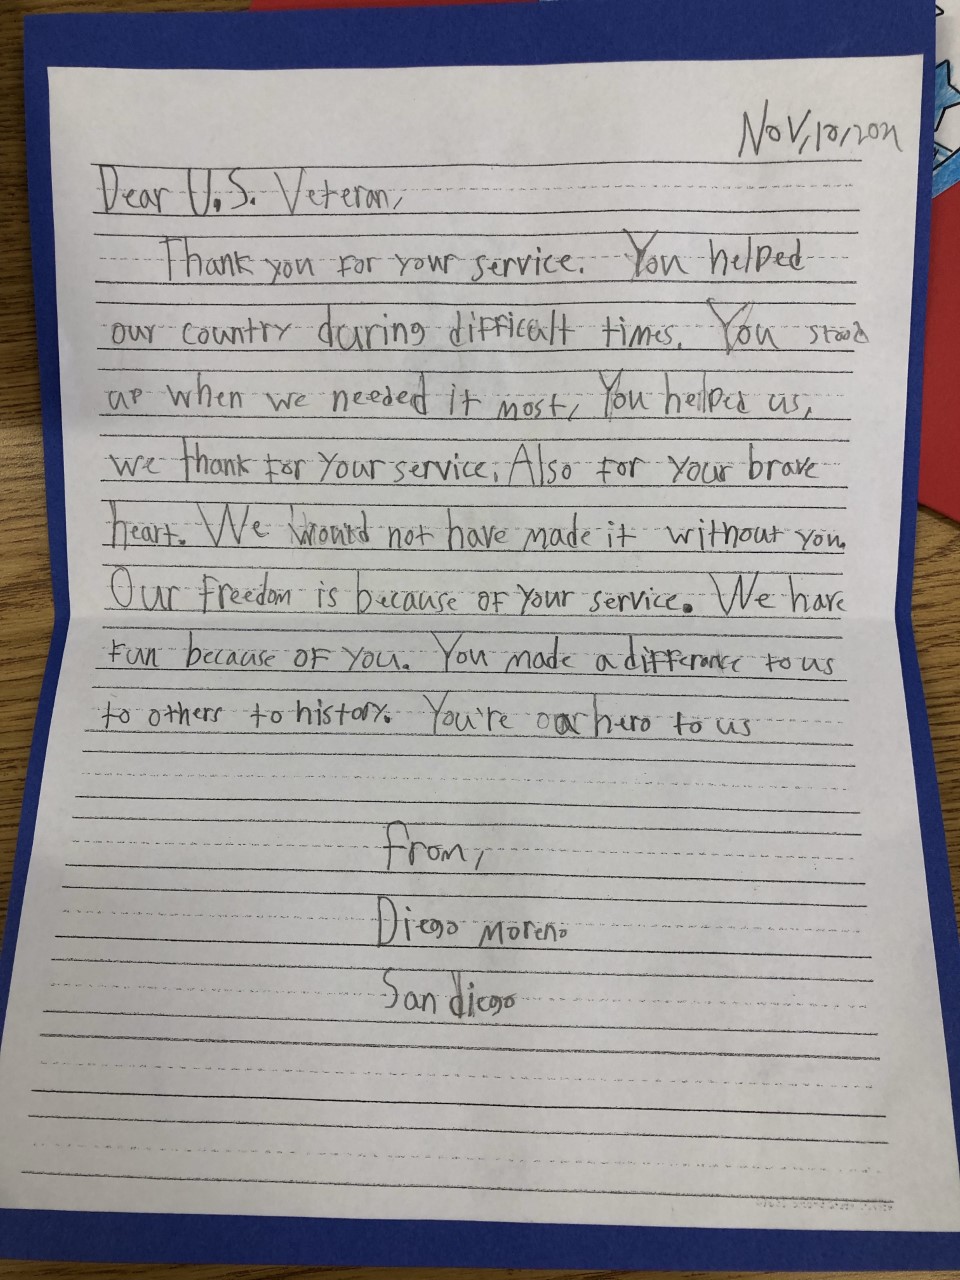 Nov,10,2021
Dear U.S. Veteran,
Thank you for your service. You helped
our country during difficult times. You stood
up when we needed it most, You helped us,
we thank for your service. Also for your brave
heart. We would not have made it without you.
Our freedom is because of your service. We have
fun because of you. You made a difference to us
to others to history. You're our hero to us
From,
Diego Moreno
San diego